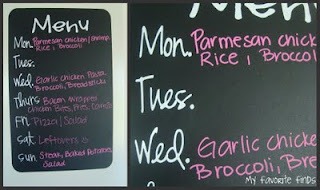 Menu
Mon. Parmesan chicken/shrimp
Rice, Broccoli
Tues.
Wed. Garlic Chicken Pasta
Broccoli, Breadsticks
Thurs Bacon Wrapped
Chicken Bites, Fries, Carrots
Fri. Pizza/Salad
Sat. Leftovers
Sun. Steak, Baked Potatoes,
Salad
Menu
Mon. Parmesan chick
Rice, Broccol
Tues.
Wed. Garlic Chicke
Broccoli, Bre
My favorite finds